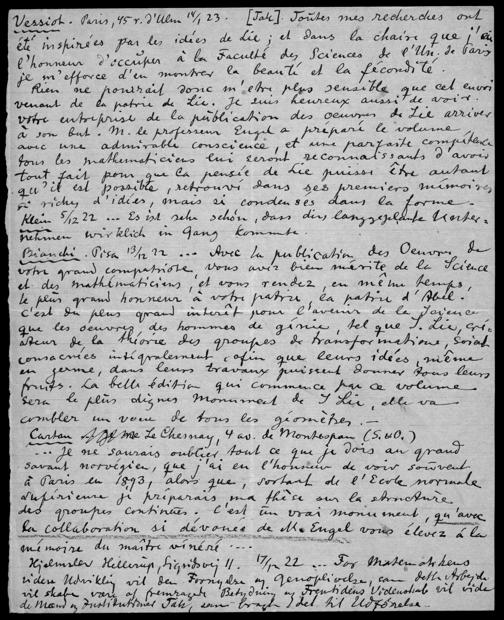 Vessiot. Paris, 45 r. d'Ulm 14/1 23. [Tak]. Toutes mes recherches ont
été inspirées par les idées de Lie; et dans la chaire que j'ai
l'honneur d'occuper à la Faculté des Sciences de l'Un. de Paris
je m'efforce d'en montrer la beauté et la fécondité.
Rien ne pourrait donc m'être plus sensible que cet envoi
venant de la patrie de Lie. Je suis heureux aussi de voir
votre entreprise de la publication des oeuvres de Lie arriver
à son but. M. le professeur Engel a préparé le volume
avec une admirable conscience, et une parfaite compétence
tous les mathématiciens lui seront reconnaissants d'avoir
tout fait pour que la pensée de Lie puisse être autant
qu'il est possible, retrouvé dans ses premiers mémoires
si riches d'idées, mais si condensés dans la forme.
Klein 5/12 22 ... Es ist sehr schön, dass dies langgeplante Unter-
nehmen wirklich in Gang kommt.
Bianchi. Pisa 13/12 22 ... Avec la publication des Oeuvres de
votre grand compatriote, vous avez bien mérité de la Science
et des mathématiciens, et vous rendez, en même temps,
le plus grand honneur à votre patrie, la patrie d'Abel.
C'est du plus grand intérêt pour l'avenir de la Science
que les oeuvres des hommes de génie, tel que S. Lie, cré-
ateur de la théorie des groupes de transformations, soient
consacrées intégralement afin que leurs idées, même
en germe, dans leurs travaux puissent donner tous leurs
fruits. La belle édition qui commence par ce volume
sera le plus dignes monument de S Lie, elle va
combler un voeu de tous les géomètres. —
Cartan Le Chesnay, 4 av. de Montespan (S. et O.)
... Je ne saurais oublier tout ce que je dois au grand
savant norvégien, que j'ai eu l'honneur de voir souvent
à Paris en 1893, alors que, sortant de l'Ecole normale
supérieure je préparais ma thèse sur la structure
des groupes continus. C'est un vrai monument, qu'avec
la collaboration si dévouée de M. Engel vous élevez à la
mémoire du maître vénéré ....
Hjelmslev Hellerup, Sigridsvej 11. 17/12 22 ... For Matematikens
videre Udvikling vil den Fornyelse og Genoplivelse, som dette Arbejde
vil skabe være af fremragende Betydning og Fremtidens Videnskab vil vide
de Mænd og Institutioner Tak, som bragte det til Udførelse.